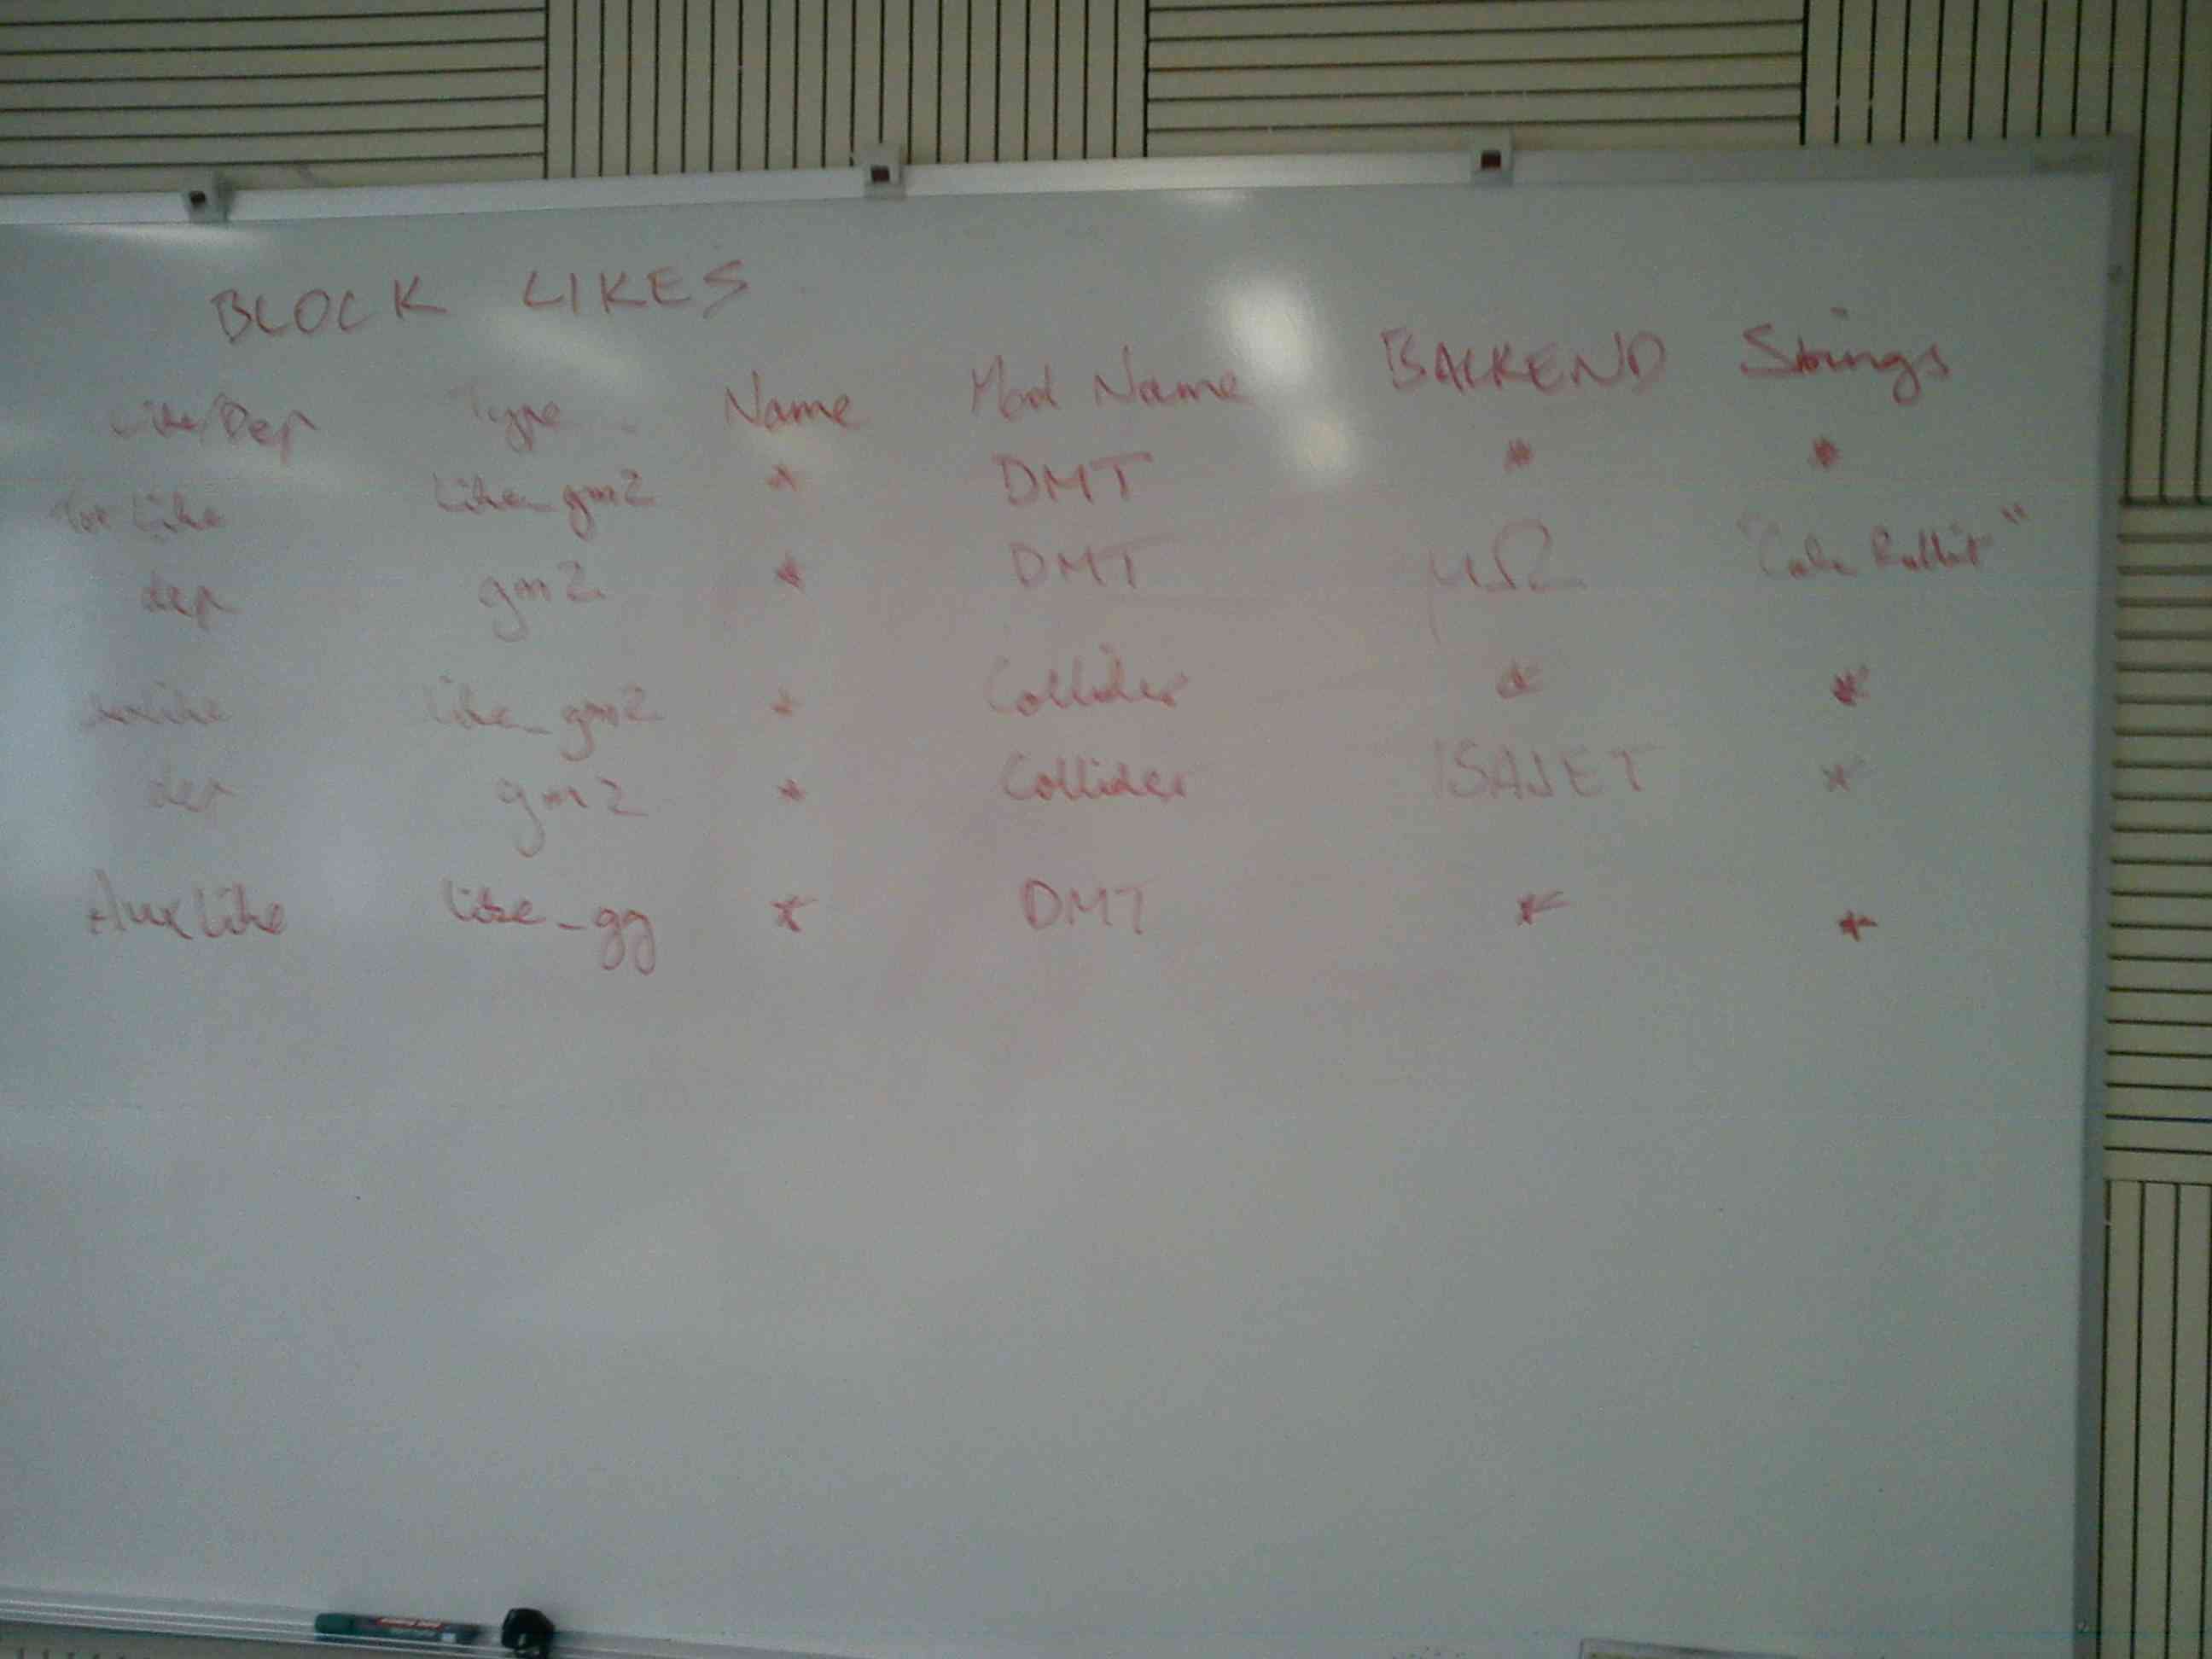 BLOCK LIKES
Like/Dep Type Name Mod Name BACKEND Strings
Tot Like Like_gm2 * DMT * *
dep gm2 * DMT μΩ "Cake Rabbit"
auxlike like_gm2 * Collider * *
dep gm2 * Collider ISAJET *
Aux like like_gg * DMT * *